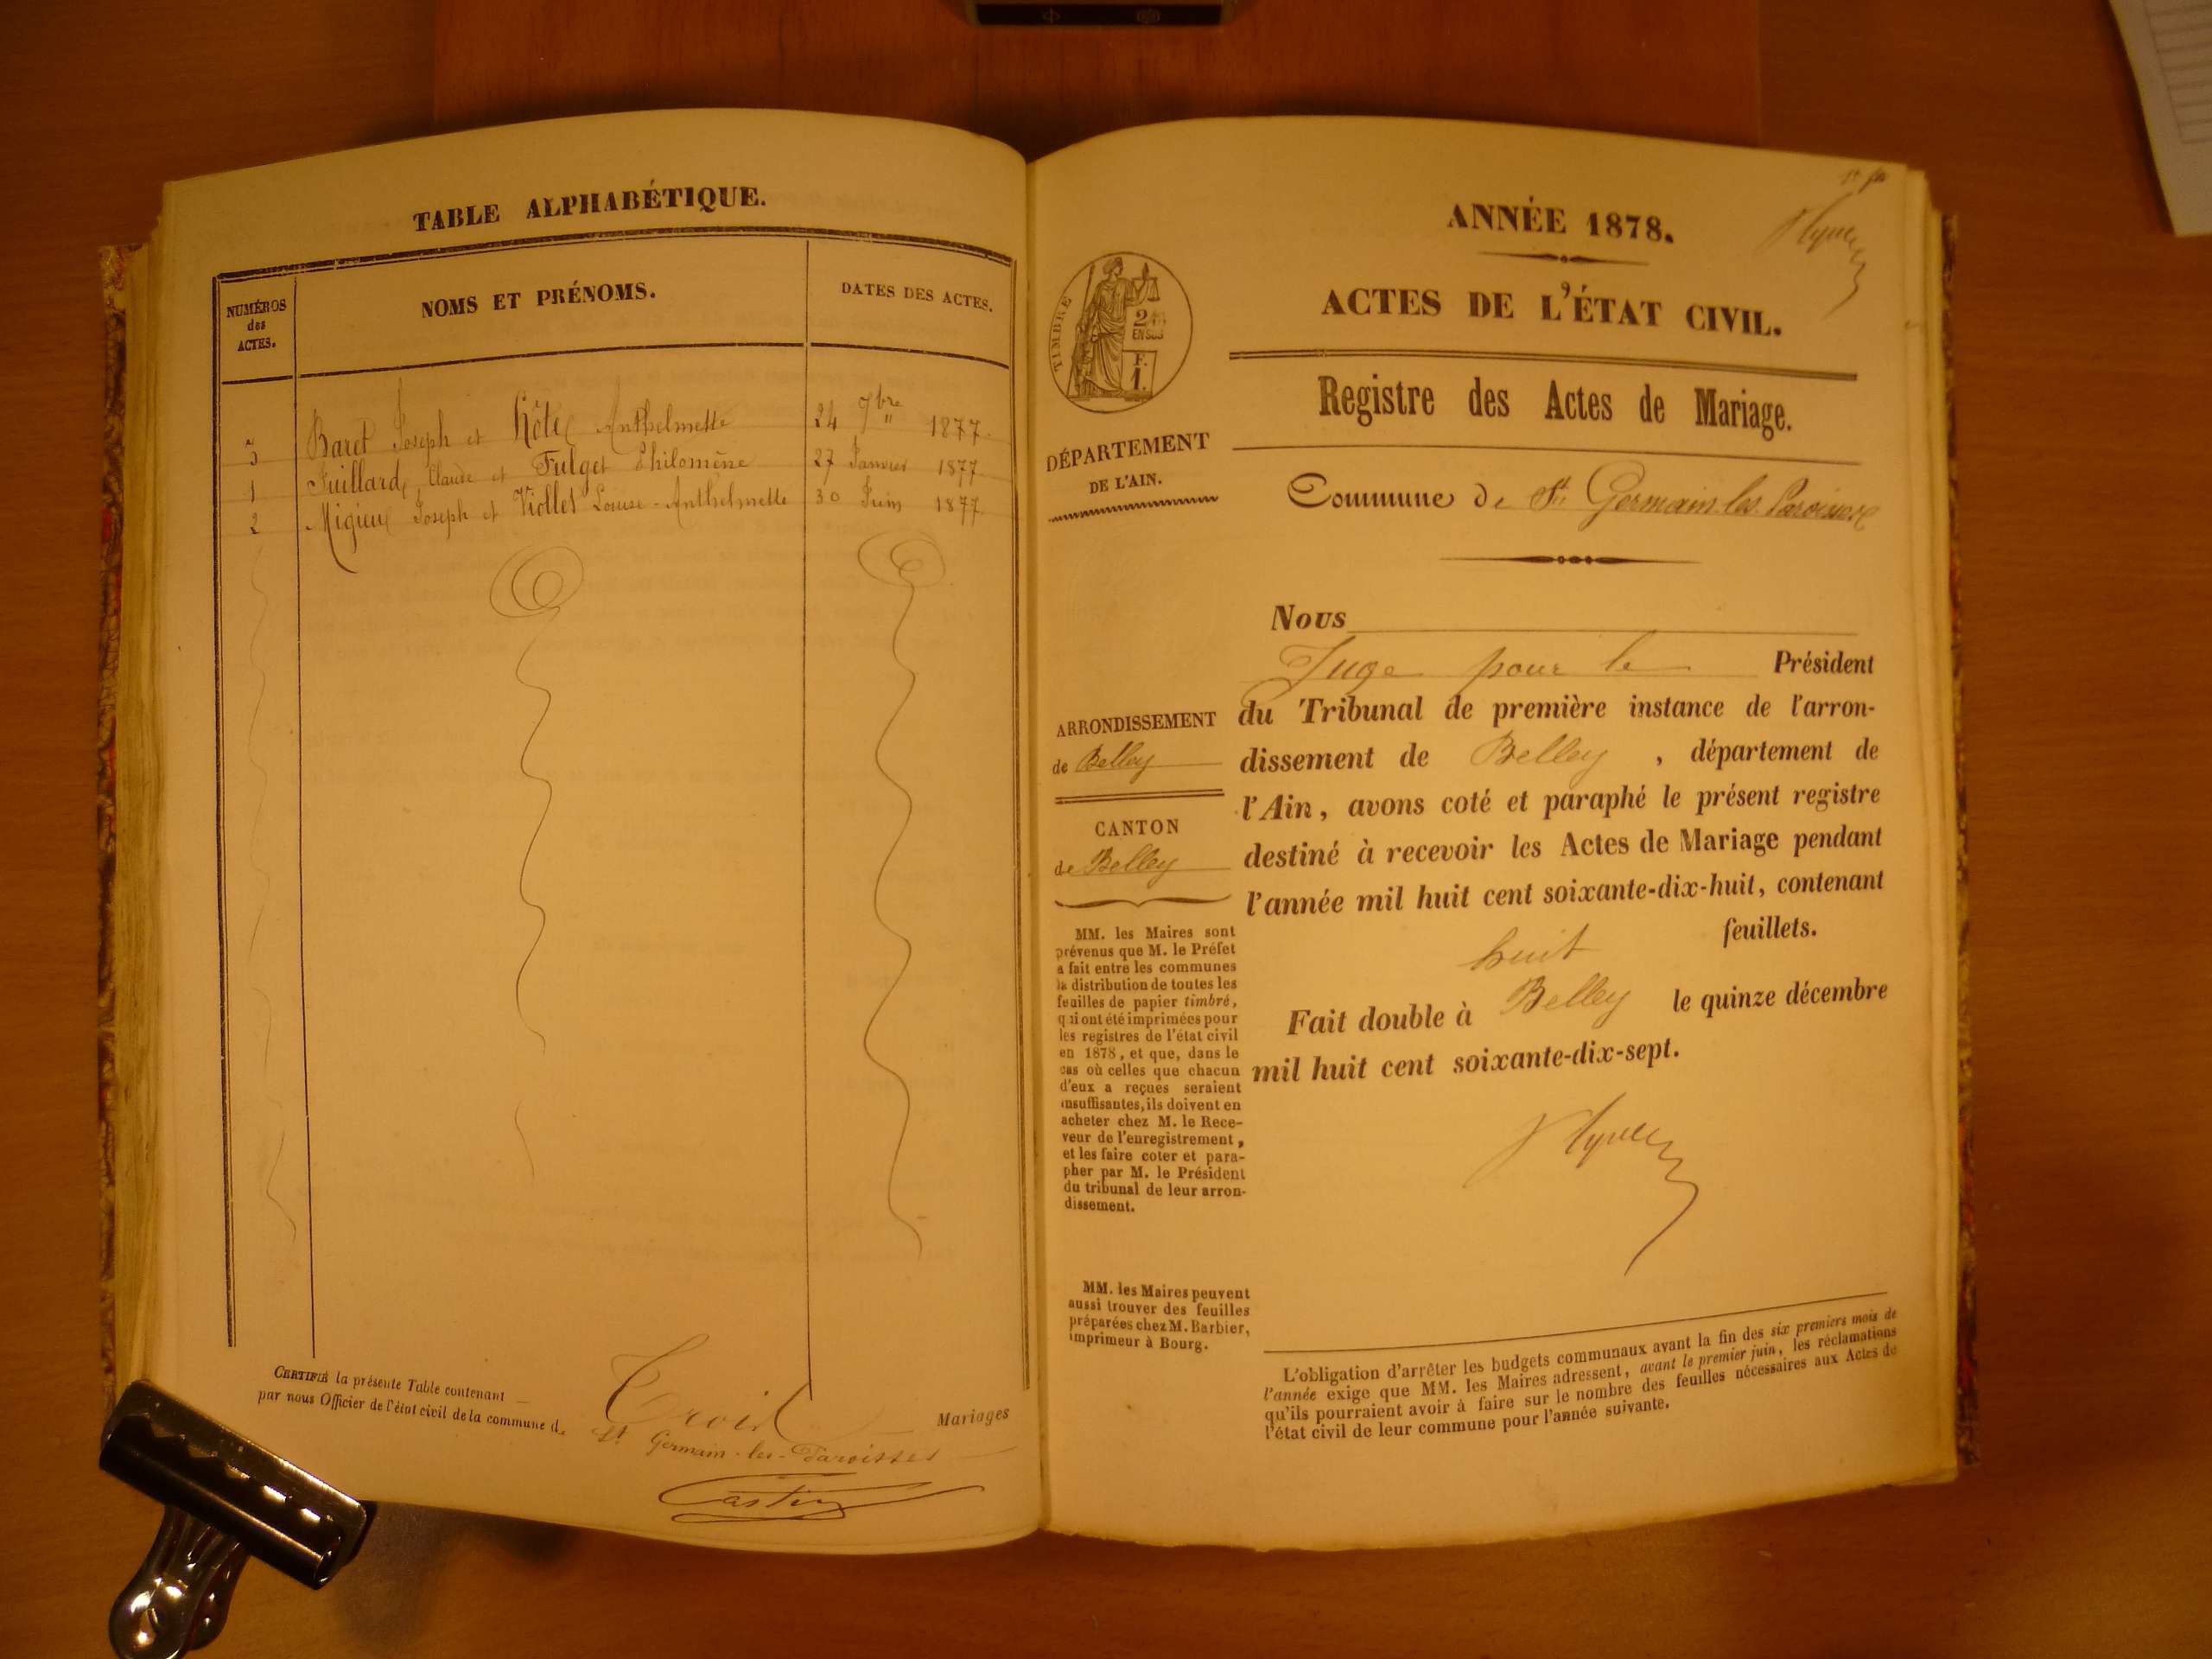 TABLE ALPHABÉTIQUE.
NUMÉROS
des
ACTES.
NOMS ET PRÉNOMS.
DATES DES ACTES.
3 Baret Joseph et Hôte Anthelmette 24 7bre " 1877
1 Juillard, Claude et Fulget Philomène 27 Janvier 1877
2 Migieu Joseph et Viollet Louise-Anthelmette 30 Juin 1877
CERTIFIÉ la présente Table contenant Trois Mariages
par nous Officier de l'état civil de la commune d. St Germain-les-Paroisses
1er fet
ANNÉE 1878.
ACTES DE L'ÉTAT CIVIL.
TIMBRE
EN SUS
F.
1.
Registre des Actes de Mariage.
DÉPARTEMENT
DE L'AIN.
Commune de St Germain les Paroisses
Nous
Juge pour le Président
du Tribunal de première instance de l'arron-
dissement de Belley, département de
l'Ain, avons coté et paraphé le présent registre
destiné à recevoir les Actes de Mariage pendant
l'année mil huit cent soixante-dix-huit, contenant
huit feuillets.
Fait double à Belley le quinze décembre
mil huit cent soixante-dix-sept.
ARRONDISSEMENT
de Belley
CANTON
de Belley
MM. les Maires sont
prévenus que M. le Préfet
a fait entre les communes
la distribution de toutes les
feuilles de papier timbré,
qui ont été imprimées pour
les registres de l'état civil
en 1878, et que, dans le
cas où celles que chacun
d'eux a reçues seraient
insuffisantes, ils doivent en
acheter chez M. le Rece-
veur de l'enregistrement,
et les faire coter et para-
pher par M. le Président
du tribunal de leur arron-
dissement.
MM. les Maires peuvent
aussi trouver des feuilles
préparées chez M. Barbier,
imprimeur à Bourg.
L'obligation d'arrêter les budgets communaux avant la fin des six premiers mois de
l'année exige que MM. les Maires adressent, avant le premier juin, les réclamations
qu'ils pourraient avoir à faire sur le nombre des feuilles nécessaires aux Actes de
l'état civil de leur commune pour l'année suivante.